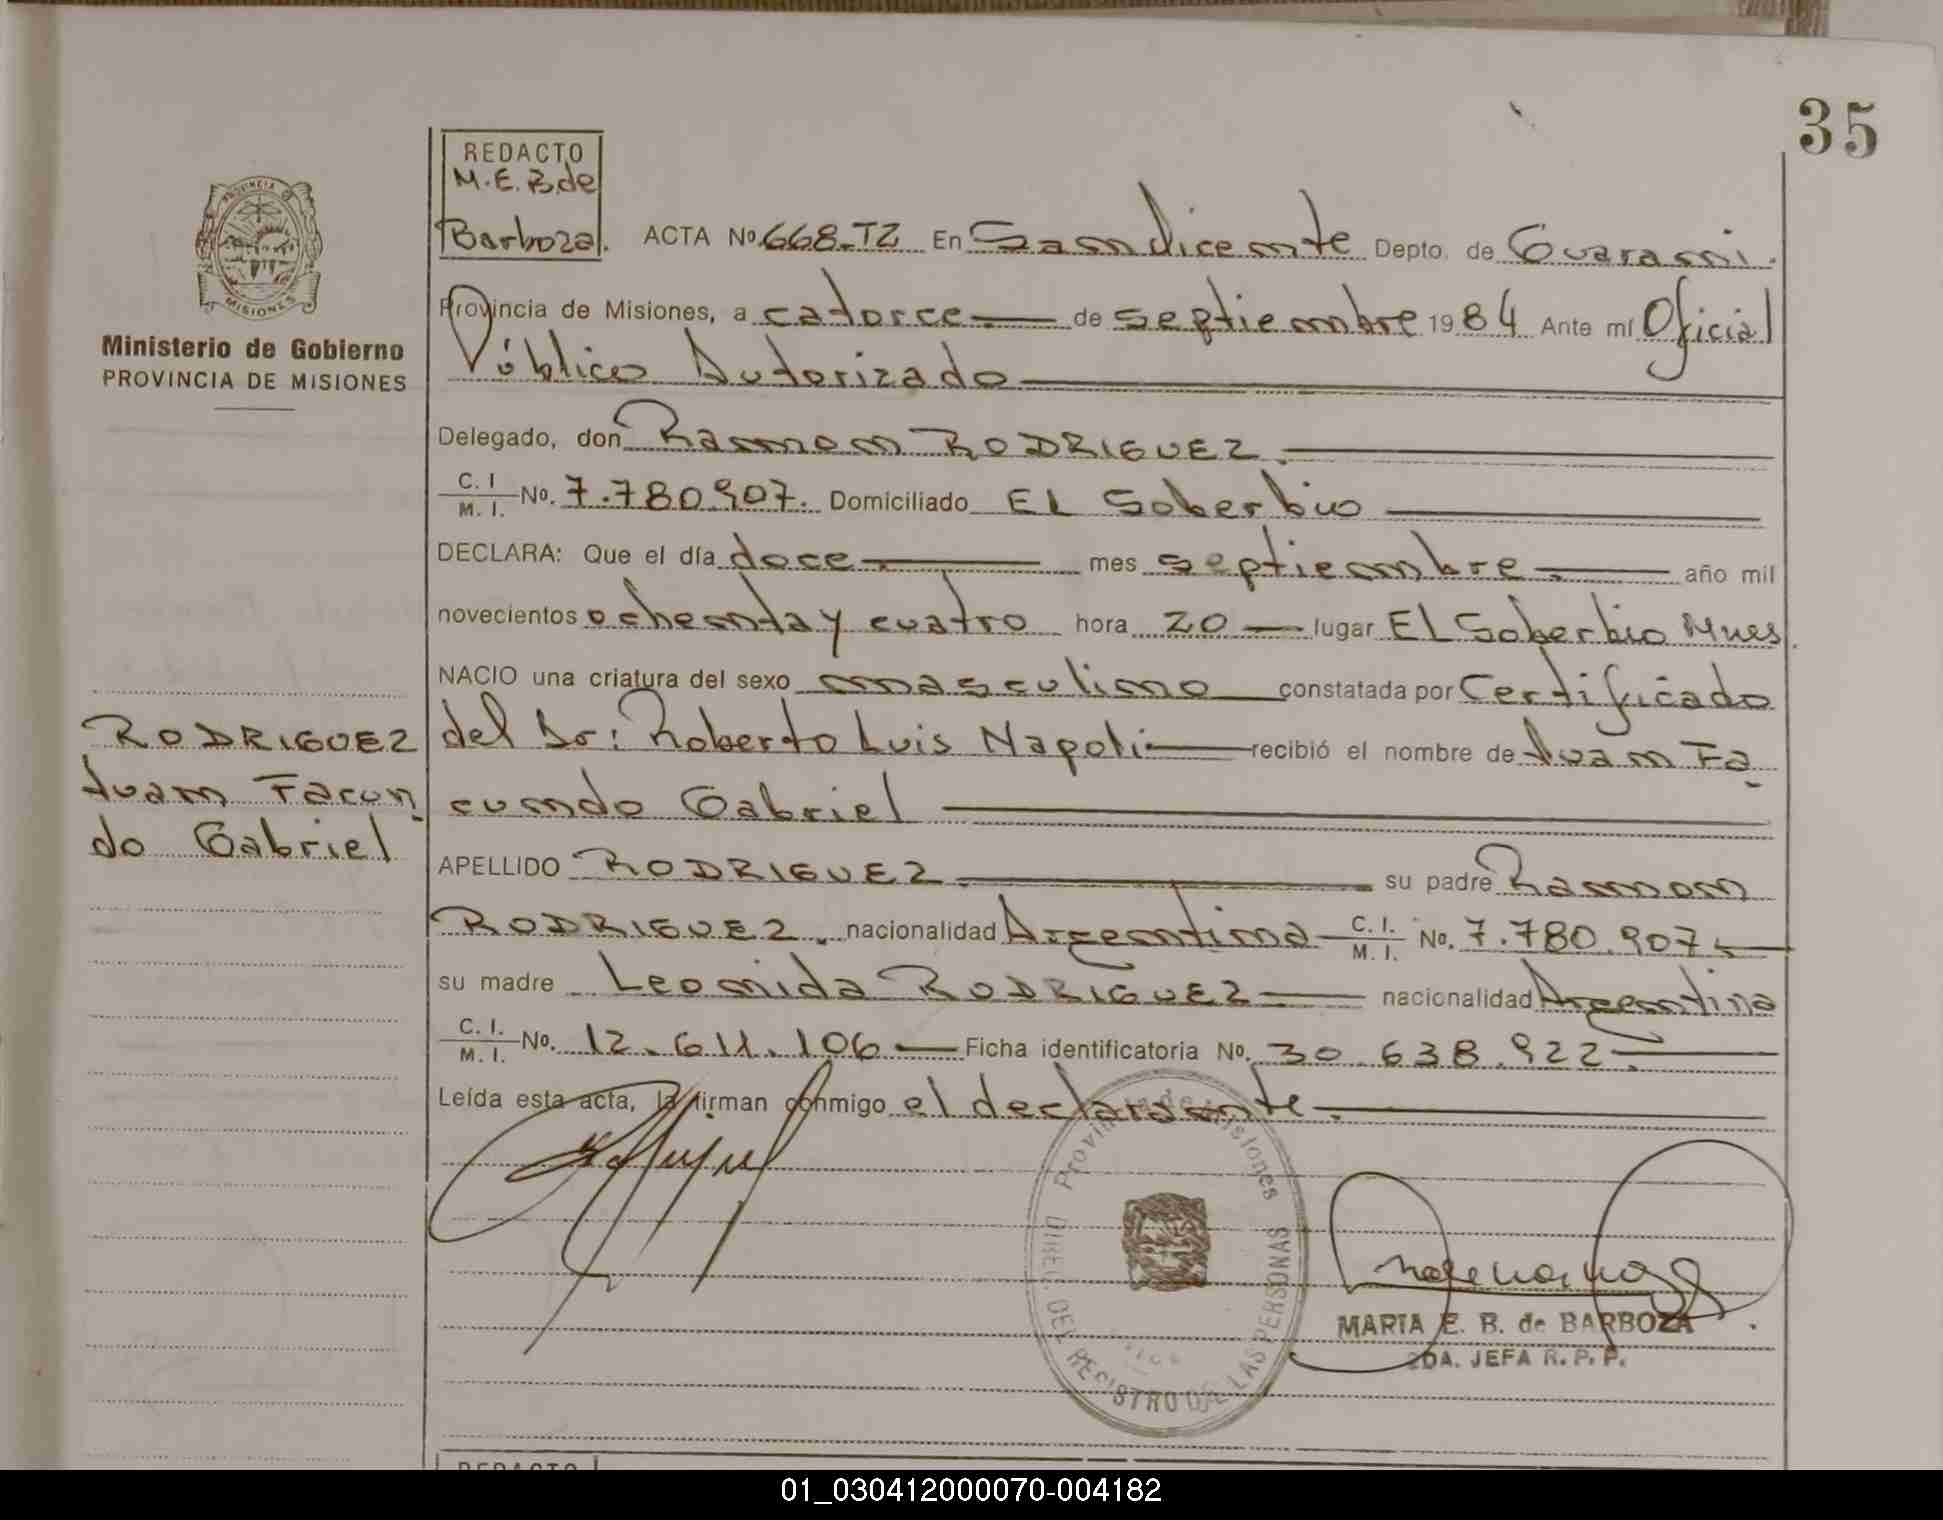 35
REDACTO
M.E.B. de
Barboza.
ACTA No. 668-T2 En San Vicente Depto. de Guarani.
Ministerio de Gobierno
PROVINCIA DE MISIONES
Provincia de Misiones, a catorce de septiembre 1984 Ante mí Oficial
Público Autorizado
Delegado, don Ramon RODRIGUEZ.
C. I. / M. I. No. 7.780.907. Domiciliado EL Soberbio
DECLARA: Que el día doce mes septiembre. año mil
novecientos ochenta y cuatro hora 20 lugar EL Soberbio Mnes.
NACIO una criatura del sexo masculino constatada por Certificado
del Dr: Roberto Luis Napoli recibió el nombre de Juan Fa
cundo Gabriel
RODRIGUEZ
Juan Facun
do Gabriel
APELLIDO RODRIGUEZ. su padre Ramon
RODRIGUEZ. nacionalidad Argentina C. I. / M. I. No. 7.780.907.
su madre Leonida RODRIGUEZ nacionalidad Argentina
C. I. / M. I. No. 12.611.106 Ficha identificatoria No. 30.638.922.
Leída esta acta, la firman conmigo el declarante.
Provincia de Misiones
DEL REGISTRO DE LAS PERSONAS
MARIA E. B. de BARBOZA
2DA. JEFA R. P. P.
REDACTO
01_030412000070-004182